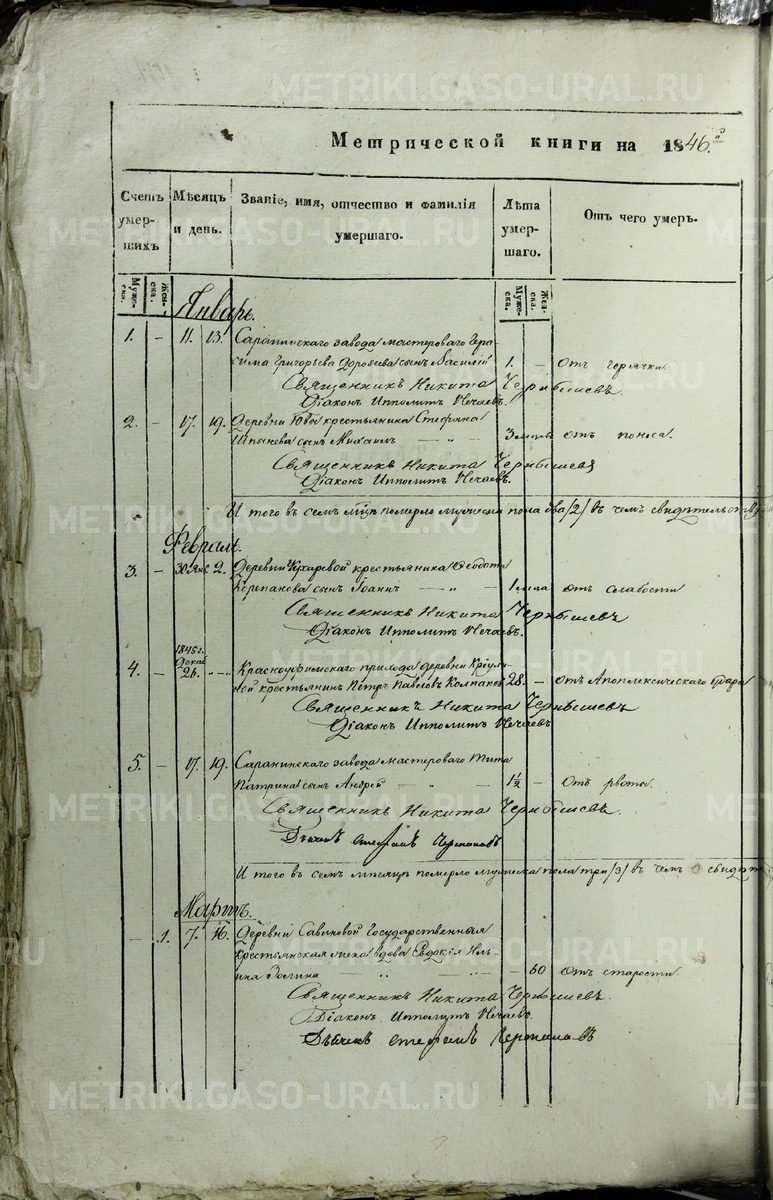 METRIKI.GASO-URAL.RU
Метрической книги на 1846.й
Счетъ умершихъ
Мѣсяцъ и день.
Званіе, имя, отчество и фамилія умершаго.
Лѣта умершаго.
Отъ чего умеръ.
Мужеска. Женска.
Мужеска. Женска.
Январь.
1. – 11. 13. Саранинскаго завода мастероваго Гера
сима Григорьева Доробьева сынъ Василій 1. – отъ горячки
Священникъ Никита Чернышевъ
Діаконъ Ипполитъ Нечаевъ.
2. – 17. 19. Деревни Ювы крестьянина Стефана
сынъ Михаилъ – „ – 3 мцвъ отъ поноса.
Священникъ Никита Чернышевъ
Діаконъ Ипполитъ Нечаевъ.
И того въ семъ мцѣ померло мужеска пола два /2/ въ чемъ свидѣтельству
Февраль.
3. – 30 Янв 2. Деревни крестьянина Феодота
Корепанова сынъ Іоаннъ – „ – 1 мца отъ слабости
Священникъ Никита Чернышевъ
Діаконъ Ипполитъ Нечаевъ.
1845 г.
Декаб
4. – 26. Красноуфимскаго прихода деревни
крестьянинъ Петръ Павловъ Колпаковъ 28. – отъ Апоплексическаго удара
Священникъ Никита Чернышевъ
Діаконъ Ипполитъ Нечаевъ
5. – 17. 19. Саранинскаго завода мастероваго Тита
Патрина сынъ Андрей – „ – 1½ – отъ рвоты.
Священникъ Никита Чернышевъ.
Дьячекъ Стефанъ Черепановъ
И того въ семъ мѣсяцѣ померло мужеска пола три /3/ въ чемъ свидѣт
Мартъ.
– 1. 7. 16. Деревни Савиновой Государственная
крестьянская жена вдова Евдокія Иль
ина – 60 отъ старости.
Священникъ Никита Чернышевъ.
Діаконъ Ипполитъ Нечаевъ
Дьячекъ Стефанъ Черепановъ